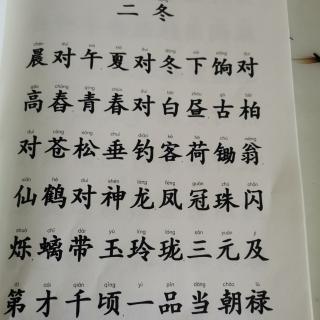 二 冬
晨对午夏对冬下饷对
高舂青春对白昼古柏
对苍松垂钓客荷锄翁
仙鹤对神龙凤冠珠闪
烁螭带玉玲珑三元及
第才千顷一品当朝禄